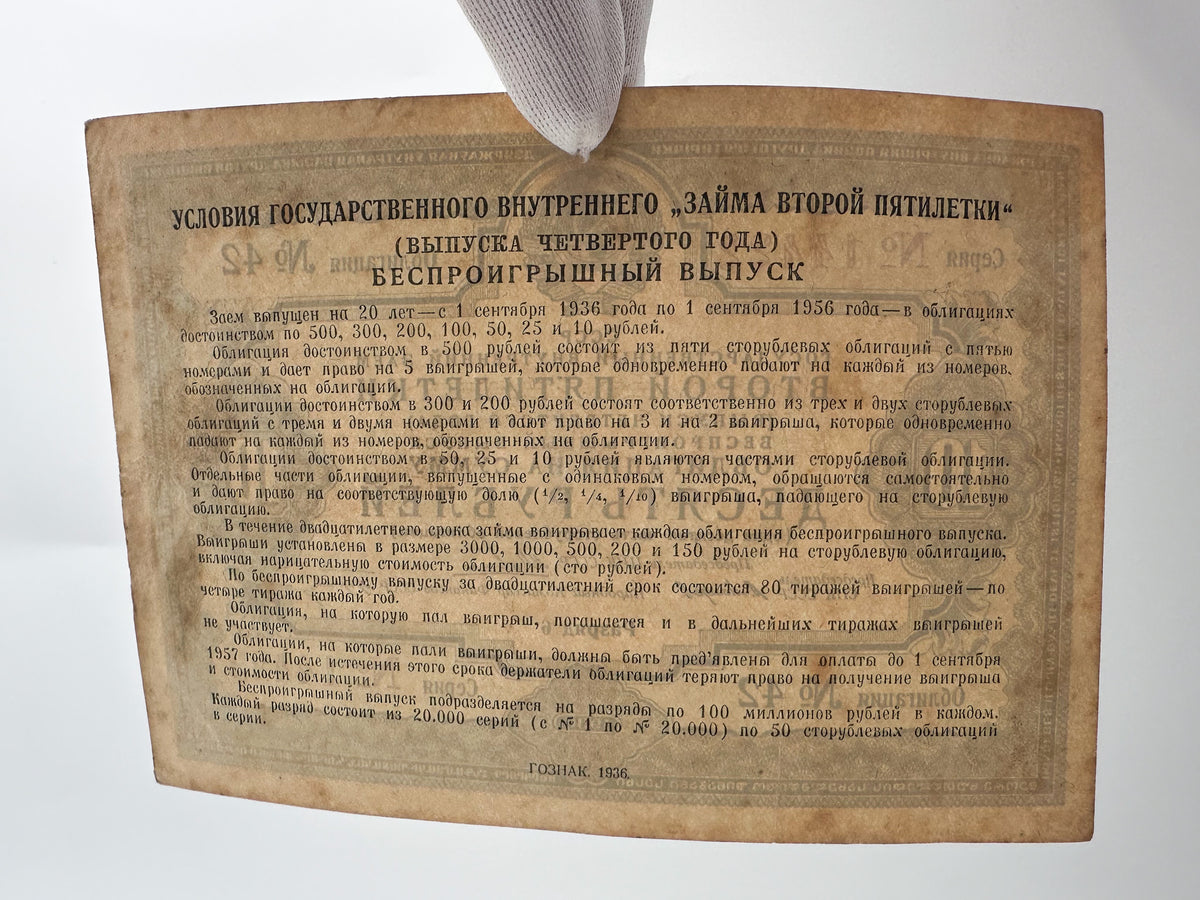 УСЛОВИЯ ГОСУДАРСТВЕННОГО ВНУТРЕННЕГО „ЗАЙМА ВТОРОЙ ПЯТИЛЕТКИ“
(ВЫПУСКА ЧЕТВЕРТОГО ГОДА)
БЕСПРОИГРЫШНЫЙ ВЫПУСК
Заем выпущен на 20 лет—с 1 сентября 1936 года по 1 сентября 1956 года—в облигациях
достоинством по 500, 300, 200, 100, 50, 25 и 10 рублей.
Облигация достоинством в 500 рублей состоит из пяти сторублевых облигаций с пятью
номерами и дает право на 5 выигрышей, которые одновременно падают на каждый из номеров,
обозначенных на облигации.
Облигации достоинством в 300 и 200 рублей состоят соответственно из трех и двух сторублевых
облигаций с тремя и двумя номерами и дают право на 3 и на 2 выигрыша, которые одновременно
падают на каждый из номеров, обозначенных на облигации.
Облигации достоинством в 50, 25 и 10 рублей являются частями сторублевой облигации.
Отдельные части облигации, выпущенные с одинаковым номером, обращаются самостоятельно
и дают право на соответствующую долю (1/2, 1/4, 1/10) выигрыша, падающего на сторублевую
облигацию.
В течение двадцатилетнего срока займа выигрывает каждая облигация беспроигрышного выпуска.
Выигрыши установлены в размере 3000, 1000, 500, 200 и 150 рублей на сторублевую облигацию,
включая нарицательную стоимость облигации (сто рублей).
По беспроигрышному выпуску за двадцатилетний срок состоится 80 тиражей выигрышей—по
четыре тиража каждый год.
Облигация, на которую пал выигрыш, погашается и в дальнейших тиражах выигрышей
не участвует.
Облигации, на которые пали выигрыши, должны быть пред’явлены для оплаты до 1 сентября
1957 года. После истечения этого срока держатели облигаций теряют право на получение выигрыша
и стоимости облигации.
Беспроигрышный выпуск подразделяется на разряды по 100 миллионов рублей в каждом.
Каждый разряд состоит из 20.000 серий (с № 1 по № 20.000) по 50 сторублевых облигаций
в серии.
ГОЗНАК. 1936.